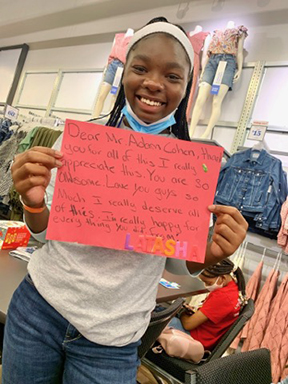 Dear Mr Adam Cohen, Thank
you for all of this I really
appreciate this. You are so
awesome. Love you guys so
Much. I really deserve all
of this. Im really happy for
every thing you
LATASH
$15